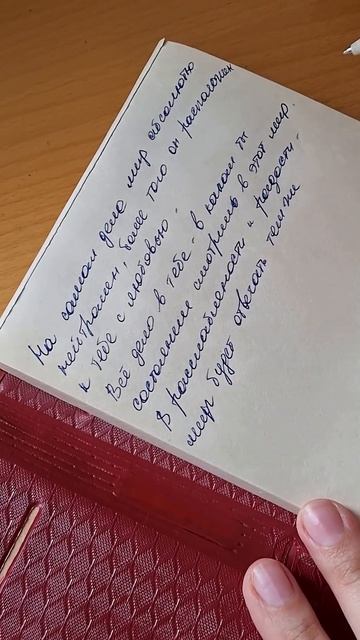 На самом деле мир абсолютно
нейтрален, более того он расположен
к тебе с любовью.
Всё дело в тебе - в каком ты
состоянии смотришь в этот мир.
В расслабленности и радости -
мир будет отвечать тем же